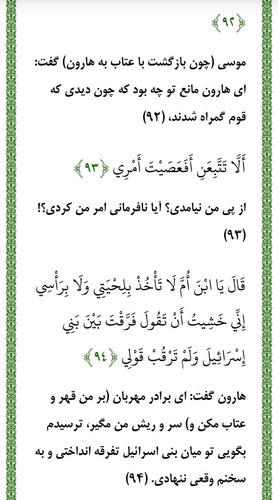 ﴿۹۲﴾
موسی (چون بازگشت با عتاب به هارون) گفت:
ای هارون مانع تو چه بود که چون دیدی که
قوم گمراه شدند، (۹۲)
أَلَّا تَتَّبِعَنِ أَفَعَصَيْتَ أَمْرِي ﴿۹۳﴾
از پی من نیامدی؟ آیا نافرمانی امر من کردی؟!
(۹۳)
قَالَ يَا ابْنَ أُمَّ لَا تَأْخُذْ بِلِحْيَتِي وَلَا بِرَأْسِي
إِنِّي خَشِيتُ أَنْ تَقُولَ فَرَّقْتَ بَيْنَ بَنِي
إِسْرَائِيلَ وَلَمْ تَرْقُبْ قَوْلِي ﴿۹۴﴾
هارون گفت: ای برادر مهربان (بر من قهر و
عتاب مکن و) سر و ریش من مگیر، ترسیدم
بگویی تو میان بنی اسرائیل تفرقه انداختی و به
سخنم وقعی ننهادی. (۹۴)